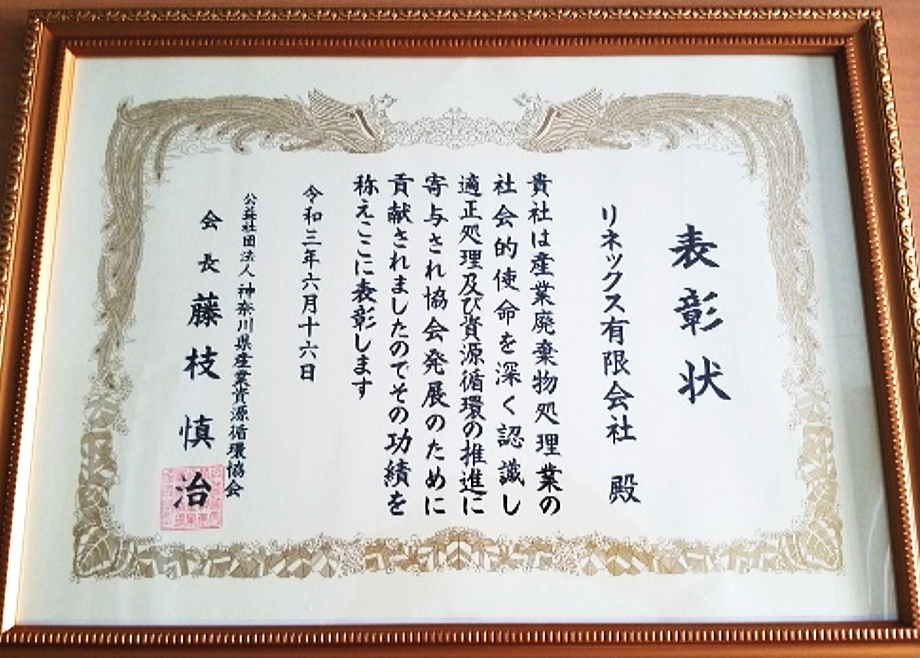 表彰状
リネックス有限会社 殿
貴社は産業廃棄物処理業の
社会的使命を深く認識し
適正処理及び資源循環の推進に
寄与され協会発展のために
貢献されましたのでその功績を
称えここに表彰します
令和三年六月十六日
公益社団法人 神奈川県産業資源循環協会
会長 藤枝慎治